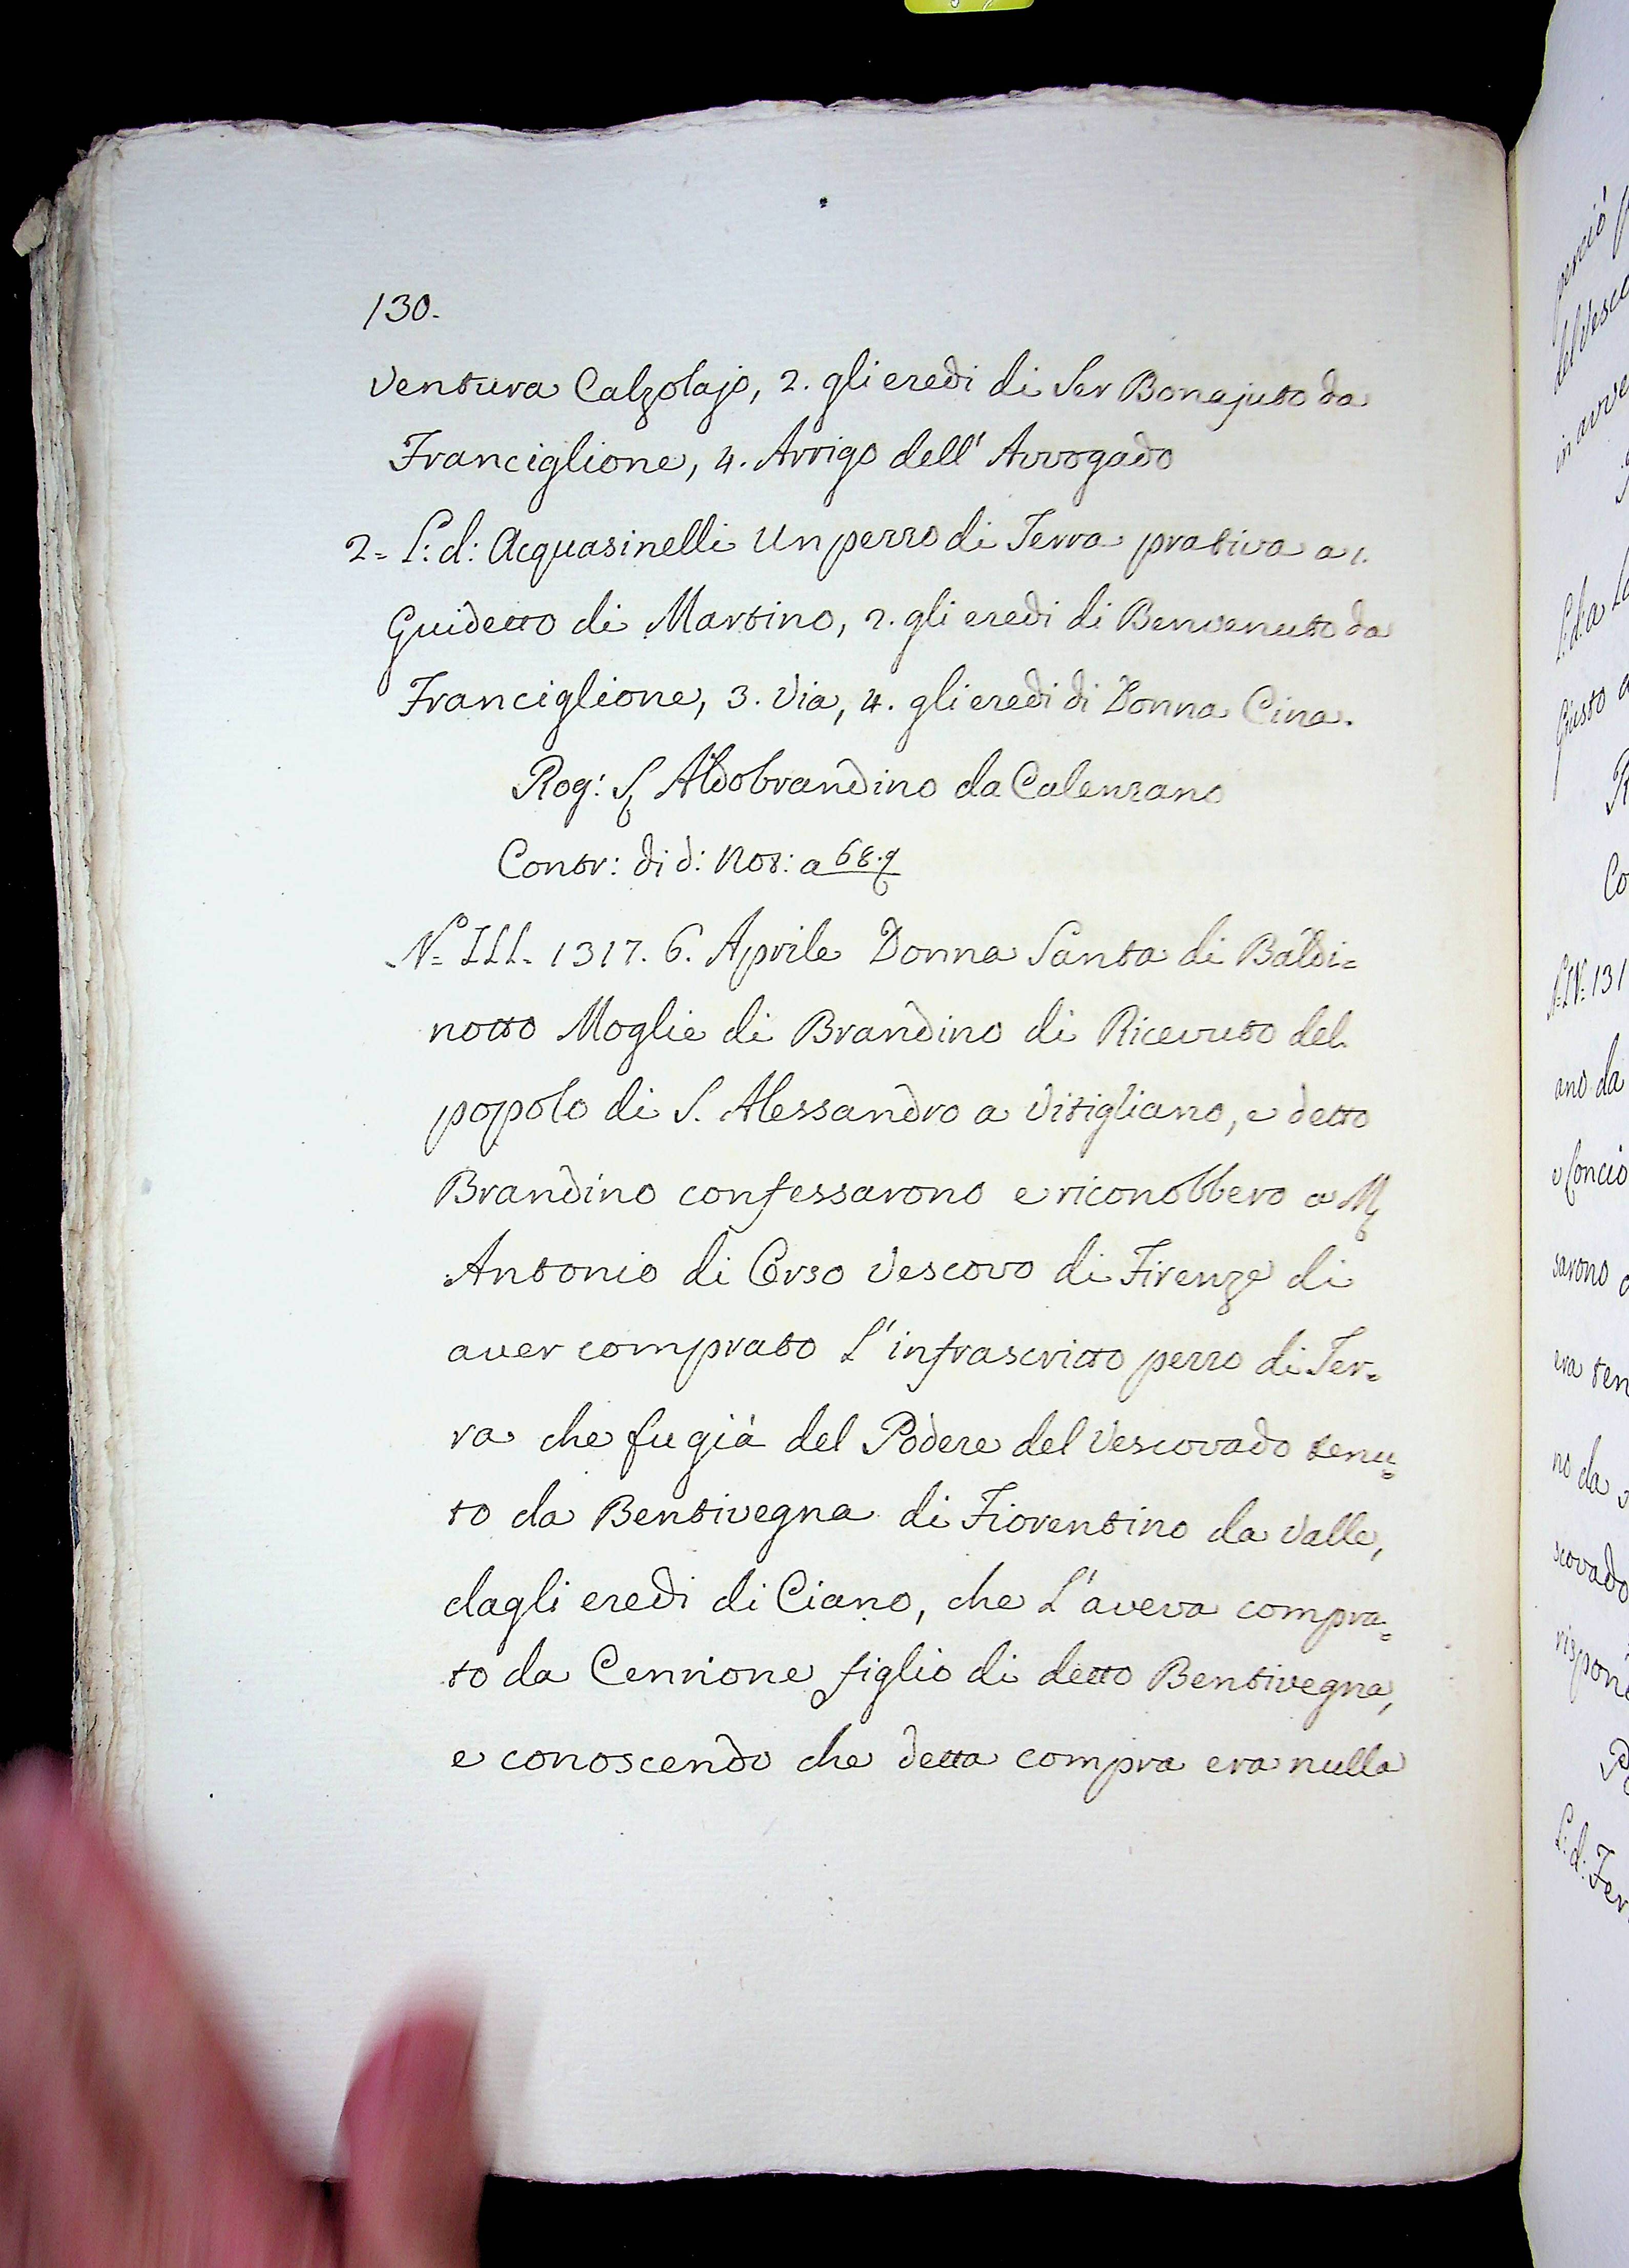 130.
Ventura Calzolajo, 2. gli eredi di Ser Bonajuto da
Franciglione, 4. Arrigo dell' Avvogado
2= L: d: Acquasinelli Un pezzo di Terra prativa a 1.
Guidetto di Martino, 2. gli eredi di Benvenuto da
Franciglione, 3. Via, 4. gli eredi di Donna Cina.
Rog: S. Aldobrandino da Calenzano
Contr: di d: Not: a 68.
N= III. 1317. 6. Aprile Donna Santa di Baldi=
notto Moglie di Brandino di Ricevuto del
popolo di S. Alessandro a Vitigliano, e detto
Brandino confessarono e riconobbero a M.
Antonio di Orso Vescovo di Firenze di
aver comprato L' infrascritto pezzo di Ter=
ra che fu già del Podere del Vescovado tenu=
to da Bentivegna di Fiorentino da Valle,
dagli eredi di Ciano, che L' aveva compra=
to da Cennione figlio di detto Bentivegna,
e conoscendo che detta compra era nulla